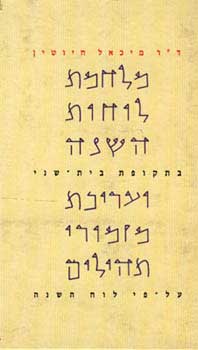 ד"ר מיכאל חיוטין
מלחמת
לוחות
השנה
בתקופת בית-שני
ועריכת
מזמורי
תהילים
על-פי לוח השנה